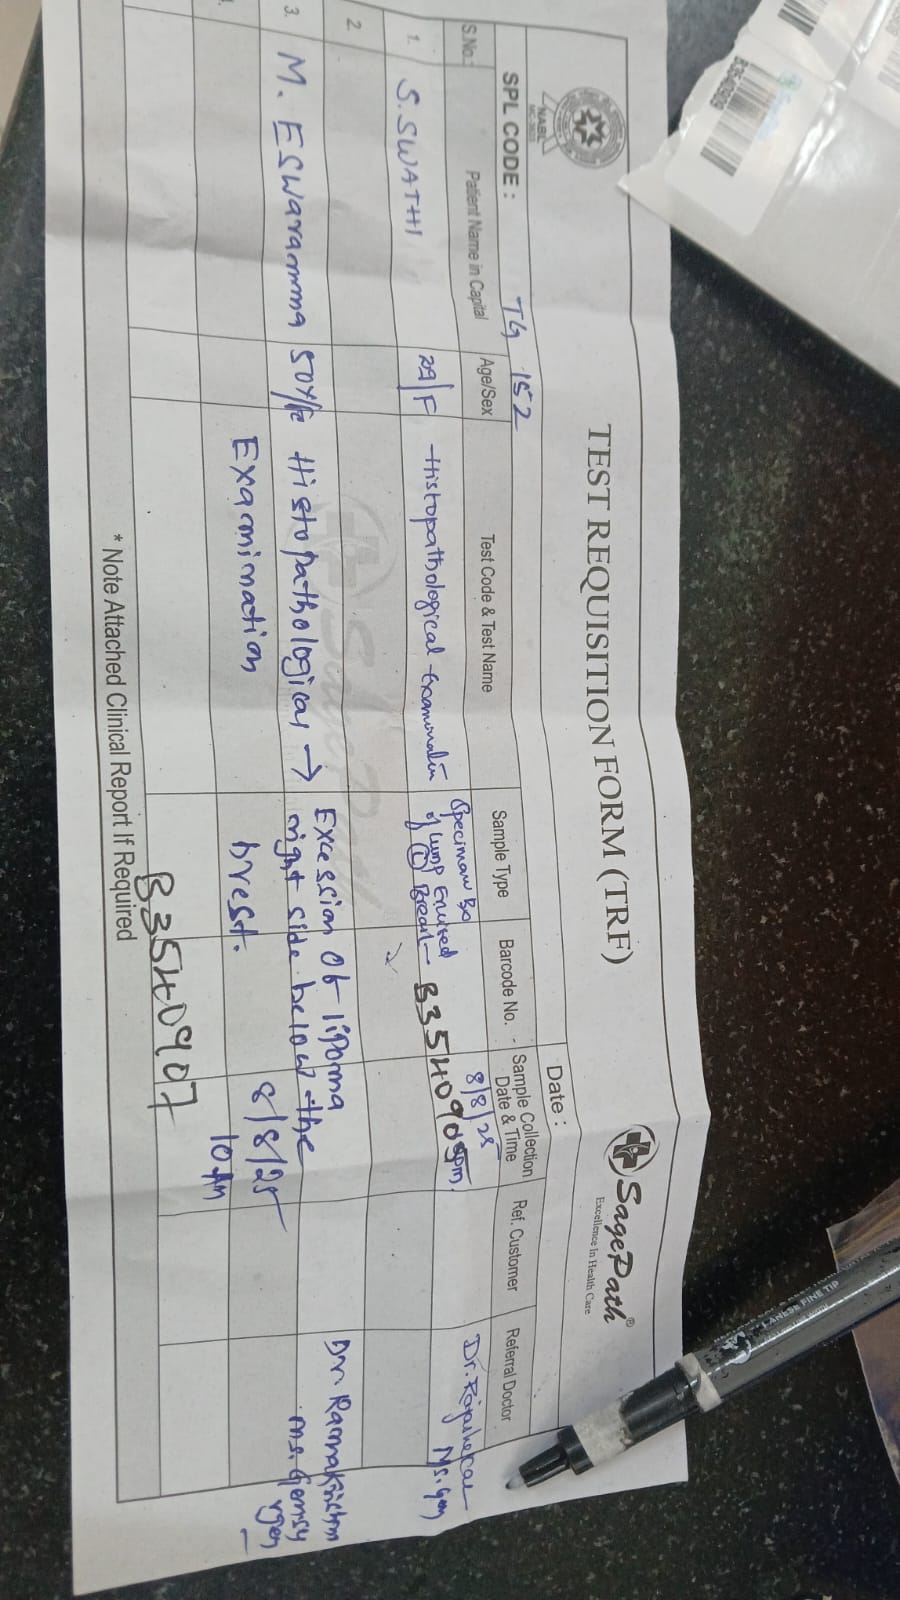 NABL
TEST REQUISITION FORM (TRF)
SagePath®
Excellence In Health Care
SPL CODE : TG 152
Date :
S.No.: Patient Name in Capital Age/Sex Test Code & Test Name Sample Type Barcode No. Sample Collection Date & Time Ref. Customer Referral Doctor
1. S.SWATHI 29/F Histopathological Examination B3540905 8/8/25 Dr. Rajashekar
of lump Excised Ms. Gen
Breast
2
3. M. ESwaramma 50Y/Fe Histopathological → Excession Of lipoma Dr. Ramakrishna
Examination right side below the
brest. 8/8/25
10 Am
B3540907
* Note Attached Clinical Report If Required
LANESE FINE TIP